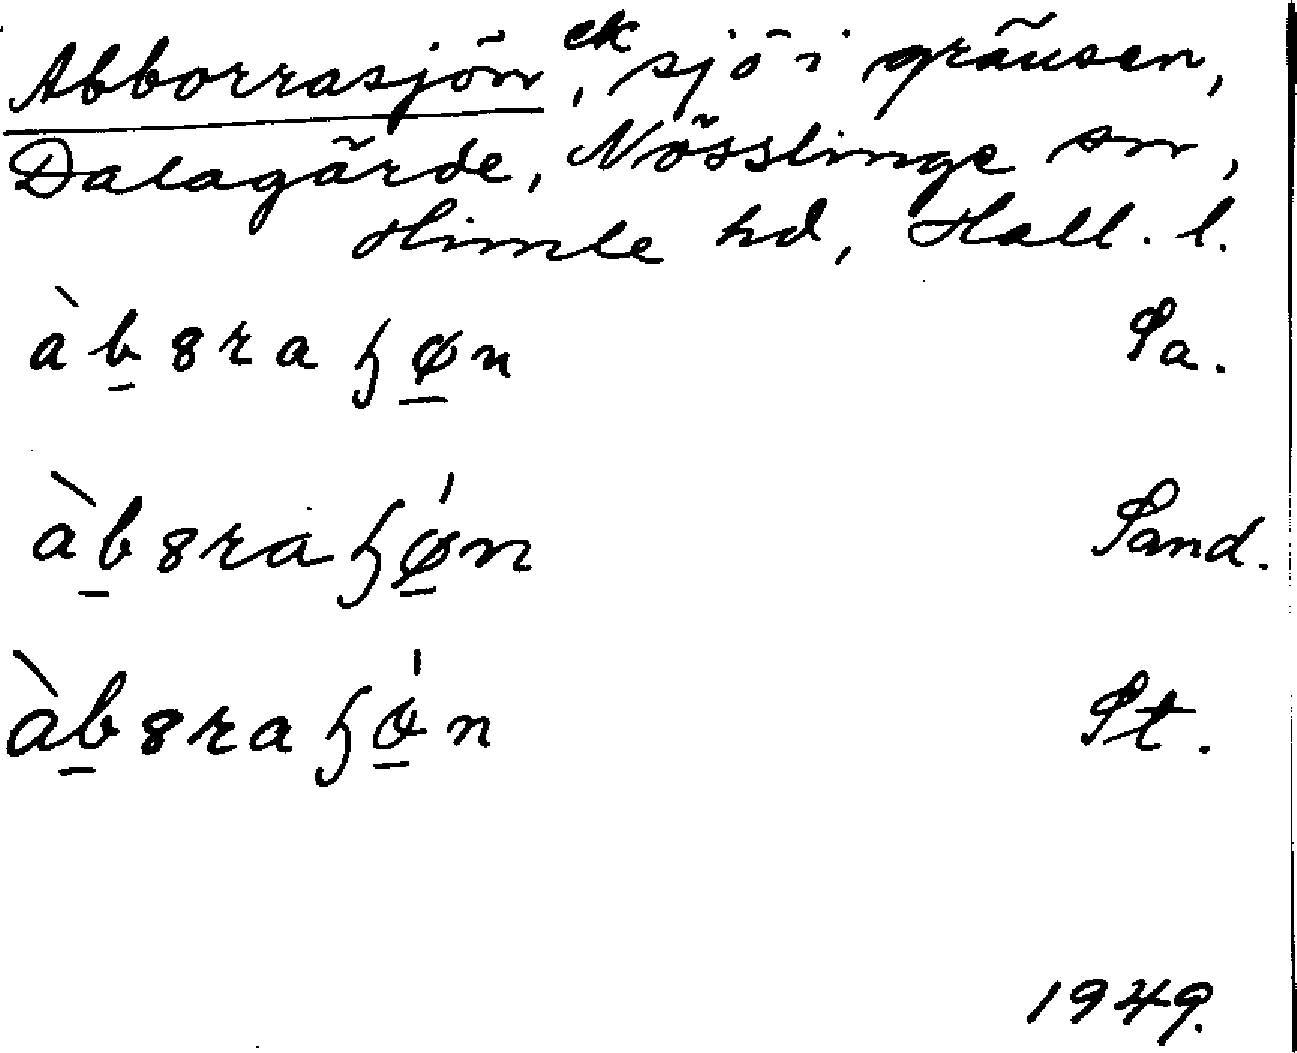 Abborrasjön ek, sjö i gränsen,
Dalagärde, Nösslinge sn,
Himle hd, Hall. l.
àb̲8raɧø̲n Sa.
àb̲8raɧǿ̲n Sand.
àb̲8raɧó̲n St.
1949.